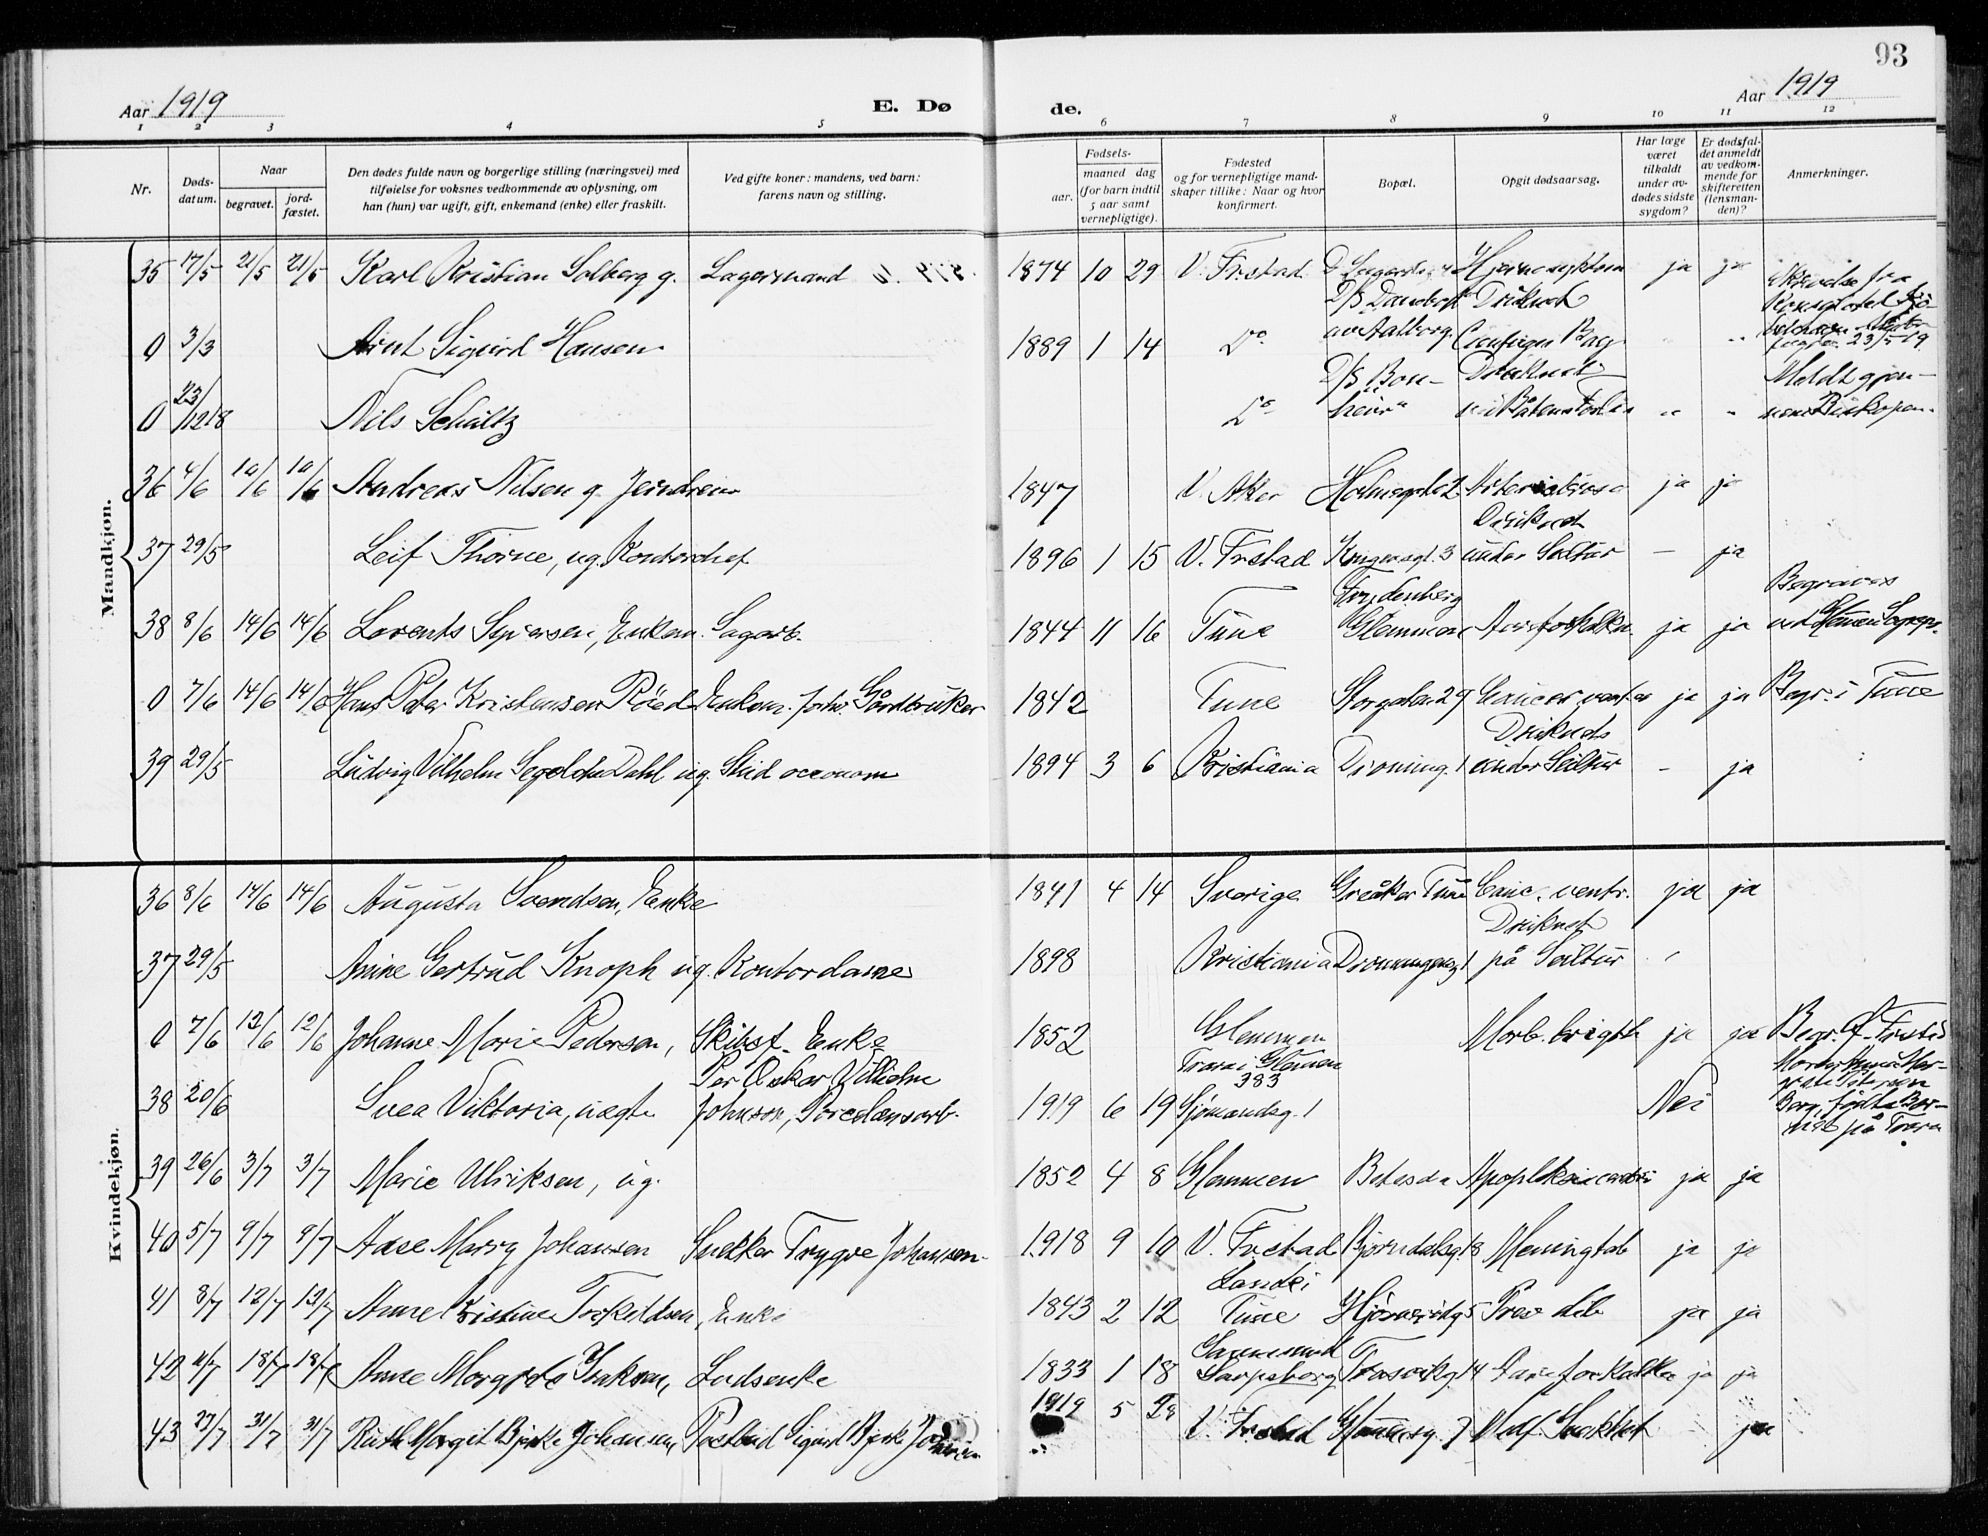 93
Aar 1919 E. Døde. Aar 1919
1 2 3 4 5 6 7 8 9 10 11 12
Nr. Døds-datum. Naar begravet. jord-fæstet. Den dødes fulde navn og borgerlige stilling (næringsvei) med tilføielse for voksnes vedkommende av oplysning, om han (hun) var ugift, gift, enkemand (enke) eller fraskilt. Ved gifte koner: mandens, ved barn: farens navn og stilling. Fødsels- aar. maaned dag (for barn indtil 5 aar samt vernepligtige). Fødested og for vernepligtige mandskaper tillike: Naar og hvor konfirmert. Bopæl. Opgit dødsaarsag. Har læge været tilkaldt under avdødes sidste sygdom? Er dødsfaldet anmeldt av vedkommende for skifteretten (lensmanden)? Anmerkninger.
Mandkjøn.
35 17/5 21/5 21/5 Karl Kristian Solberg g. Lagermand 1874 10 29 V. Fr.stad ja ja
0 3/3 Arnt Sigurd Hansen 1889 1 14 Do D/S Danebod av Aalborg Druknet
0 23/12 18 Nils Schultz Do D/S Bonheur Druknet Meldt gjennem Biskopen.
36 4/6 10/6 10/6 Andreas Nilsen g. 1847 V. Aker ja ja
37 29/5 Leif Thorne, ug. Kontorchef 1896 1 15 V. Fr.stad Kongensgt. 3 Druknet under Seiltur — ja
38 8/6 14/6 14/6 Lorents Syversen, Enkem. Sagarb. 1844 11 16 Tune Glemmen ja ja Begraves
0 7/6 14/6 14/6 Hans Peter Kristensen Røed Enkem. forhv. Gårdbruker 1842 Tune Storgaten 29 Cancer ventr. ja ja Begr. i Tune
39 29/5 Ludvig Vilhelm Dahl ug. Stud oeconom 1894 3 6 Kristiania Droning. 1 Druknet under Seiltur - ja
Kvindekjøn.
36 8/6 14/6 14/6 Augusta Svendsen, Enke 1841 4 14 Sverige Greåker Tune Canc. ventr. ja ja
37 29/5 Anne Gertrud Knoph ug. Kontordame 1898 Kristiania Dronningensg 1 Druknet på Seiltur
0 7/6 12/6 12/6 Johanne Marie Pedersen, Skibsf. Enke 1852 Glemmen Morb. brigth ja ja Begr. Ø-Fr.stad
38 20/6 Svea Viktoria, uægte Per Oskar Vilhelm Johnson, Porcelænsarb. 1919 6 19 Traraei Glemmen 383 Sjömandsg. 1 Nei
39 26/6 3/7 3/7 Marie Ulriksen, ug. 1852 4 8 Glemmen Betesda ja ja
40 5/7 9/7 9/7 Aase Marry Johansen Snekker Trygve Johansen 1918 9 10 V. Fr.stad Bjørndalsg. 18 Meningtub ja ja
41 8/7 12/7 12/7 Anne Kristine Torkildsen, Enke 1843 2 12 Tune ja ja
42 11/7 18/7 18/7 Anne Margrete Isaksen, Lodsenke 1833 1 18 Sannesund Sarpsborg Trosvikg. 14 ja ja
43 27/7 31/7 31/7 Ruth Margit Bjerke Johansen, Postbud Sigurd Bjerke Johansen 1919 5 28 V. Fr.stad ja